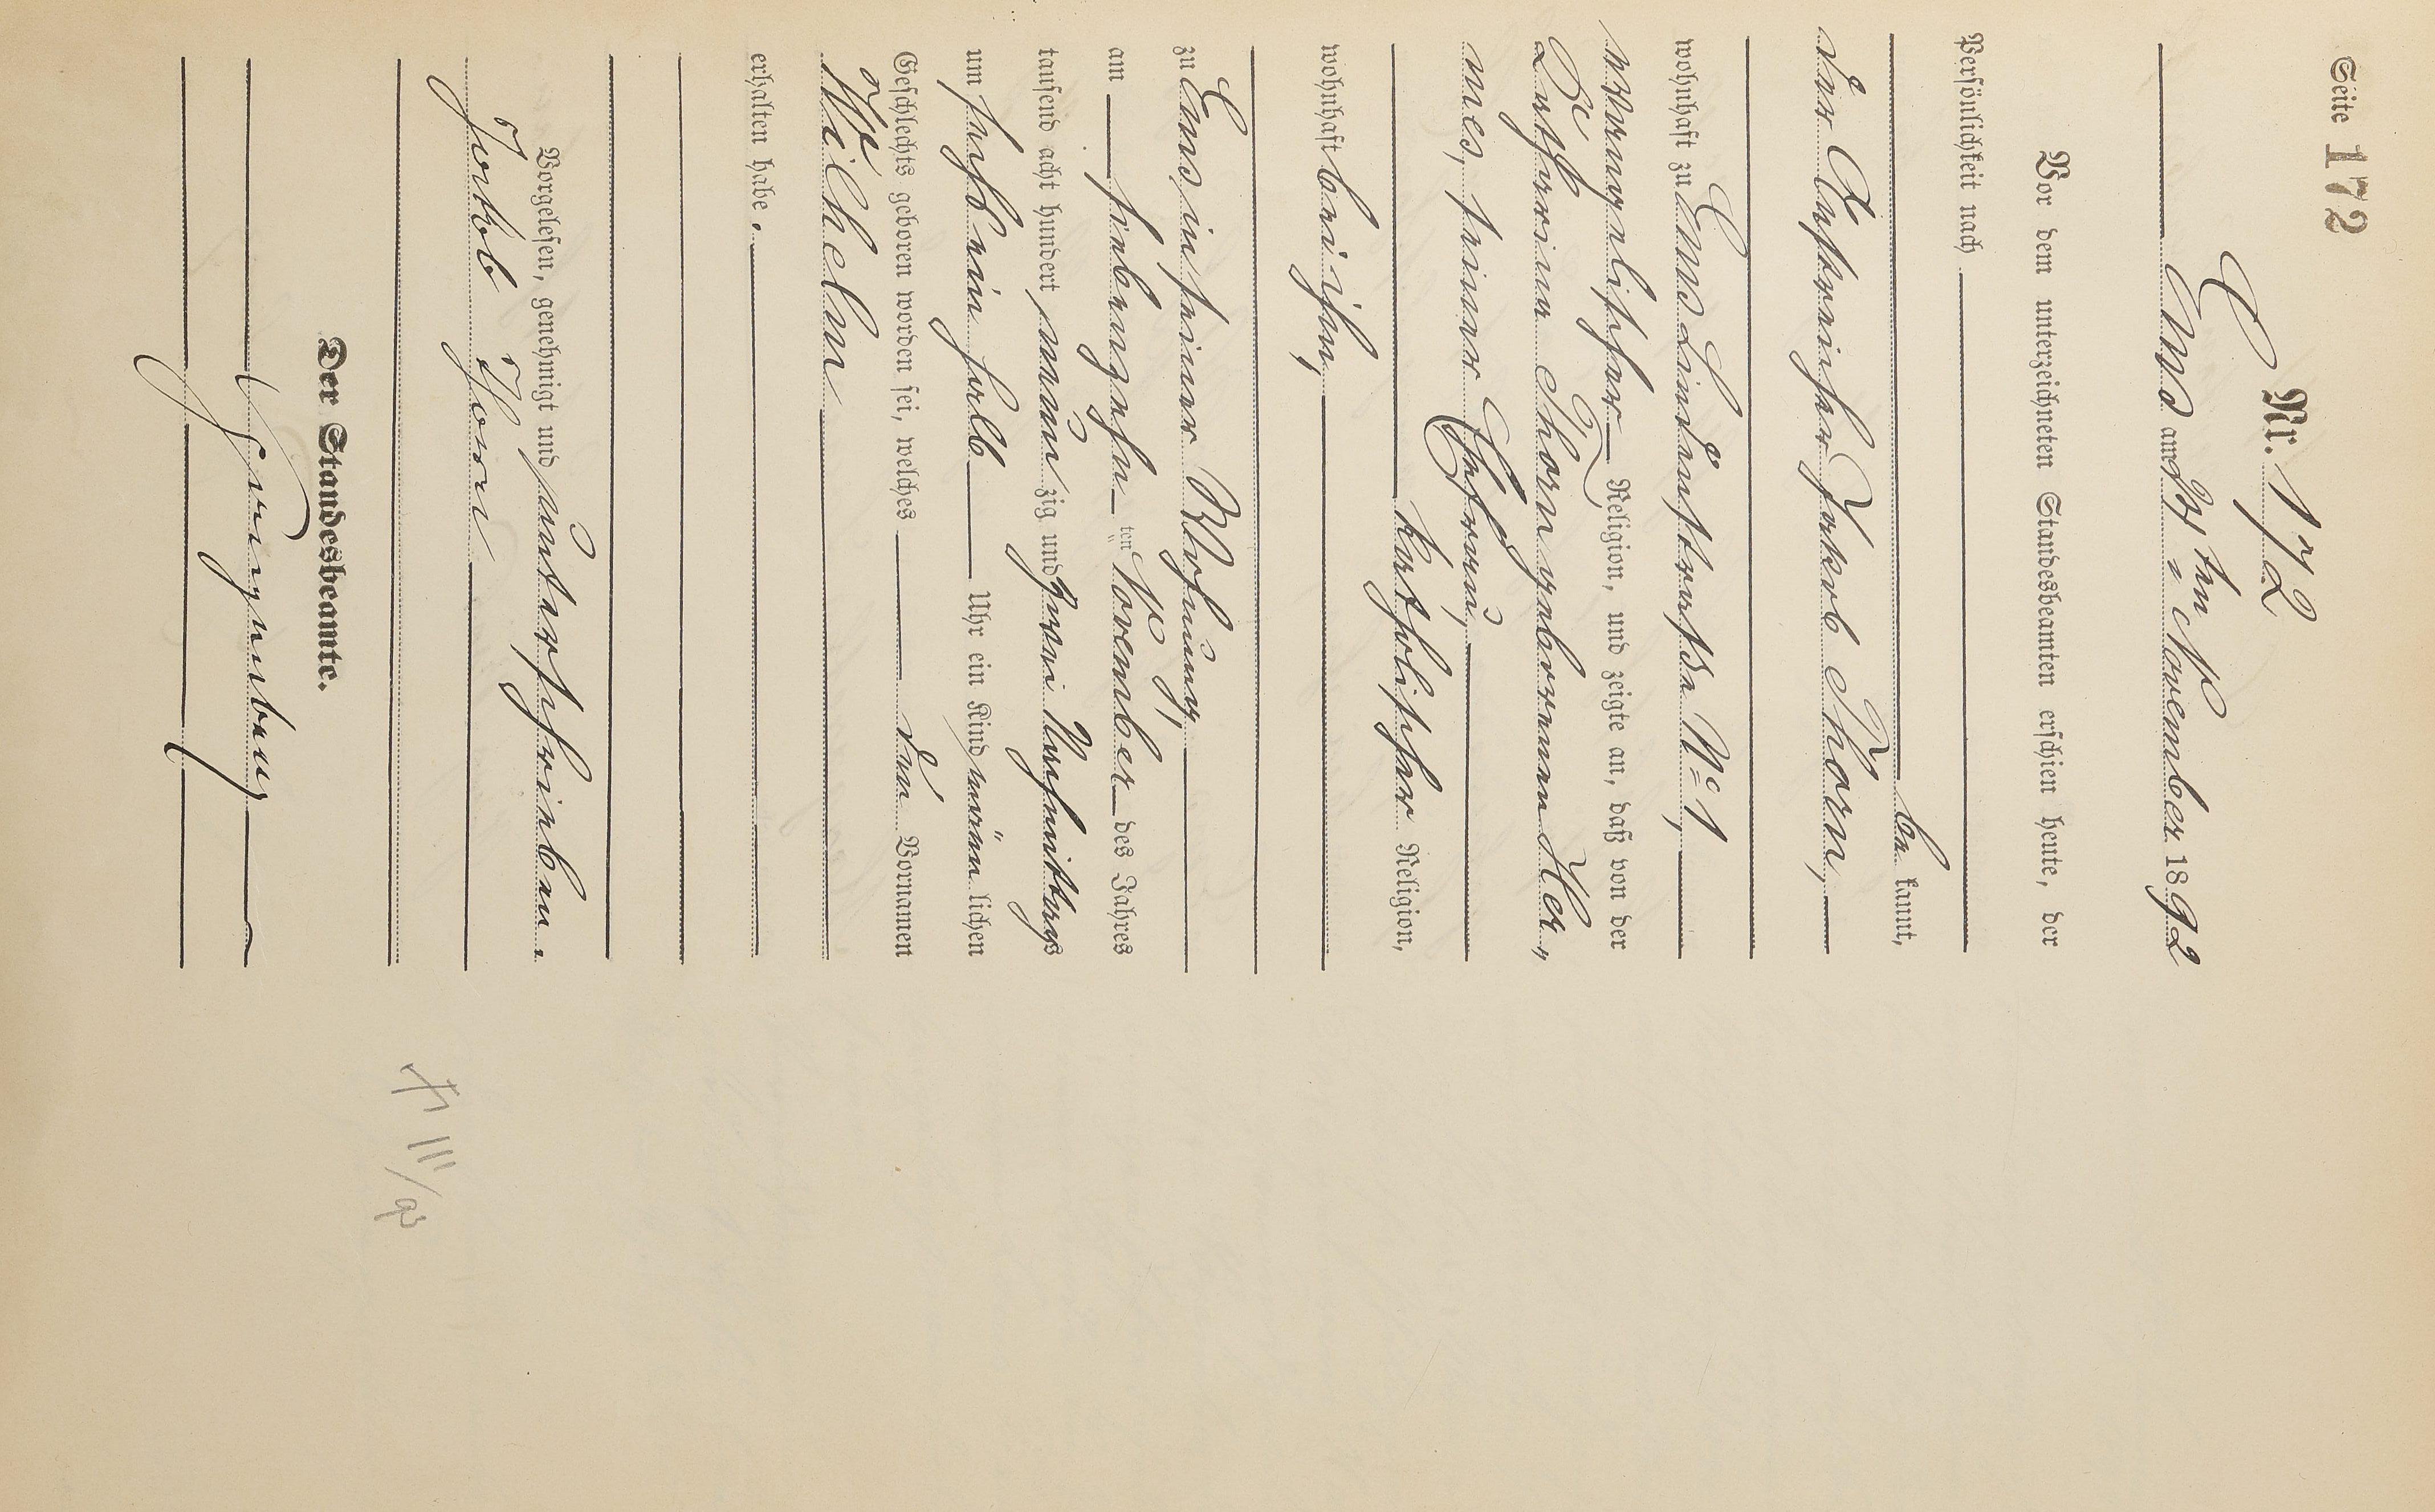 Seite 172
Nr. 172
Ems am 21ten November 1892
Vor dem unterzeichneten Standesbeamten erschien heute, der
Persönlichkeit nach
be kannt,
der Anstreicher Jakob Thorn,
wohnhaft zu Ems Lindenstraße No 1,
evangelischer Religion, und zeigte an, daß von der
Katharina Thorn geborenen Her„
mes, seiner Ehefrau,
katholischer Religion,
wohnhaft bei ihm,
zu Ems in seiner Wohnung,
am siebenzehn ten November des Jahres
tausend acht hundert neun zig und zwei Nachmittags
um sechs ein halb Uhr ein Kind männ lichen
Geschlechts geboren worden sei, welches den Vornamen
Wilhelm
erhalten habe.
Vorgelesen, genehmigt und unterschrieben.
Jakob Thorn
Der Standesbeamte.